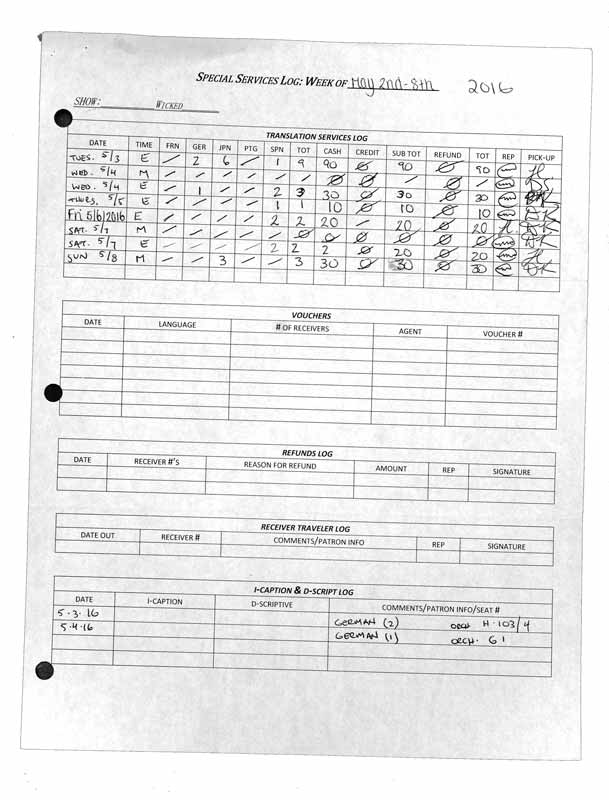 SPECIAL SERVICES LOG: WEEK OF May 2nd-8th 2016
SHOW: WICKED
TRANSLATION SERVICES LOG
DATE TIME FRN GER JPN PTG SPN TOT CASH CREDIT SUB TOT REFUND TOT REP PICK-UP
TUES. 5/3 E / 2 6 / 1 9 90 Ø 90 Ø 90
WED. 5/4 M / / / / / / Ø Ø / Ø /
WED. 5/4 E / 1 / / 2 3 30 Ø 30 Ø 30
THURS. 5/5 E / / / / 1 1 10 Ø 10 Ø 10
Fri 5/6/2016 E / / / / 2 2 20 / 20 Ø 20
SAT. 5/7 M / / / / / Ø Ø Ø Ø Ø Ø
SAT. 5/7 E / / / / 2 2 2 Ø 20 Ø 20
SUN 5/8 M / / 3 / / 3 30 Ø 30 Ø 30
VOUCHERS
DATE LANGUAGE # OF RECEIVERS AGENT VOUCHER #
REFUNDS LOG
DATE RECEIVER #'S REASON FOR REFUND AMOUNT REP SIGNATURE
RECEIVER TRAVELER LOG
DATE OUT RECEIVER # COMMENTS/PATRON INFO REP SIGNATURE
I-CAPTION & D-SCRIPT LOG
DATE I-CAPTION D-SCRIPTIVE COMMENTS/PATRON INFO/SEAT #
5-3-16 GERMAN (2) ORCH H-103/4
5-4-16 GERMAN (1) ORCH. G1